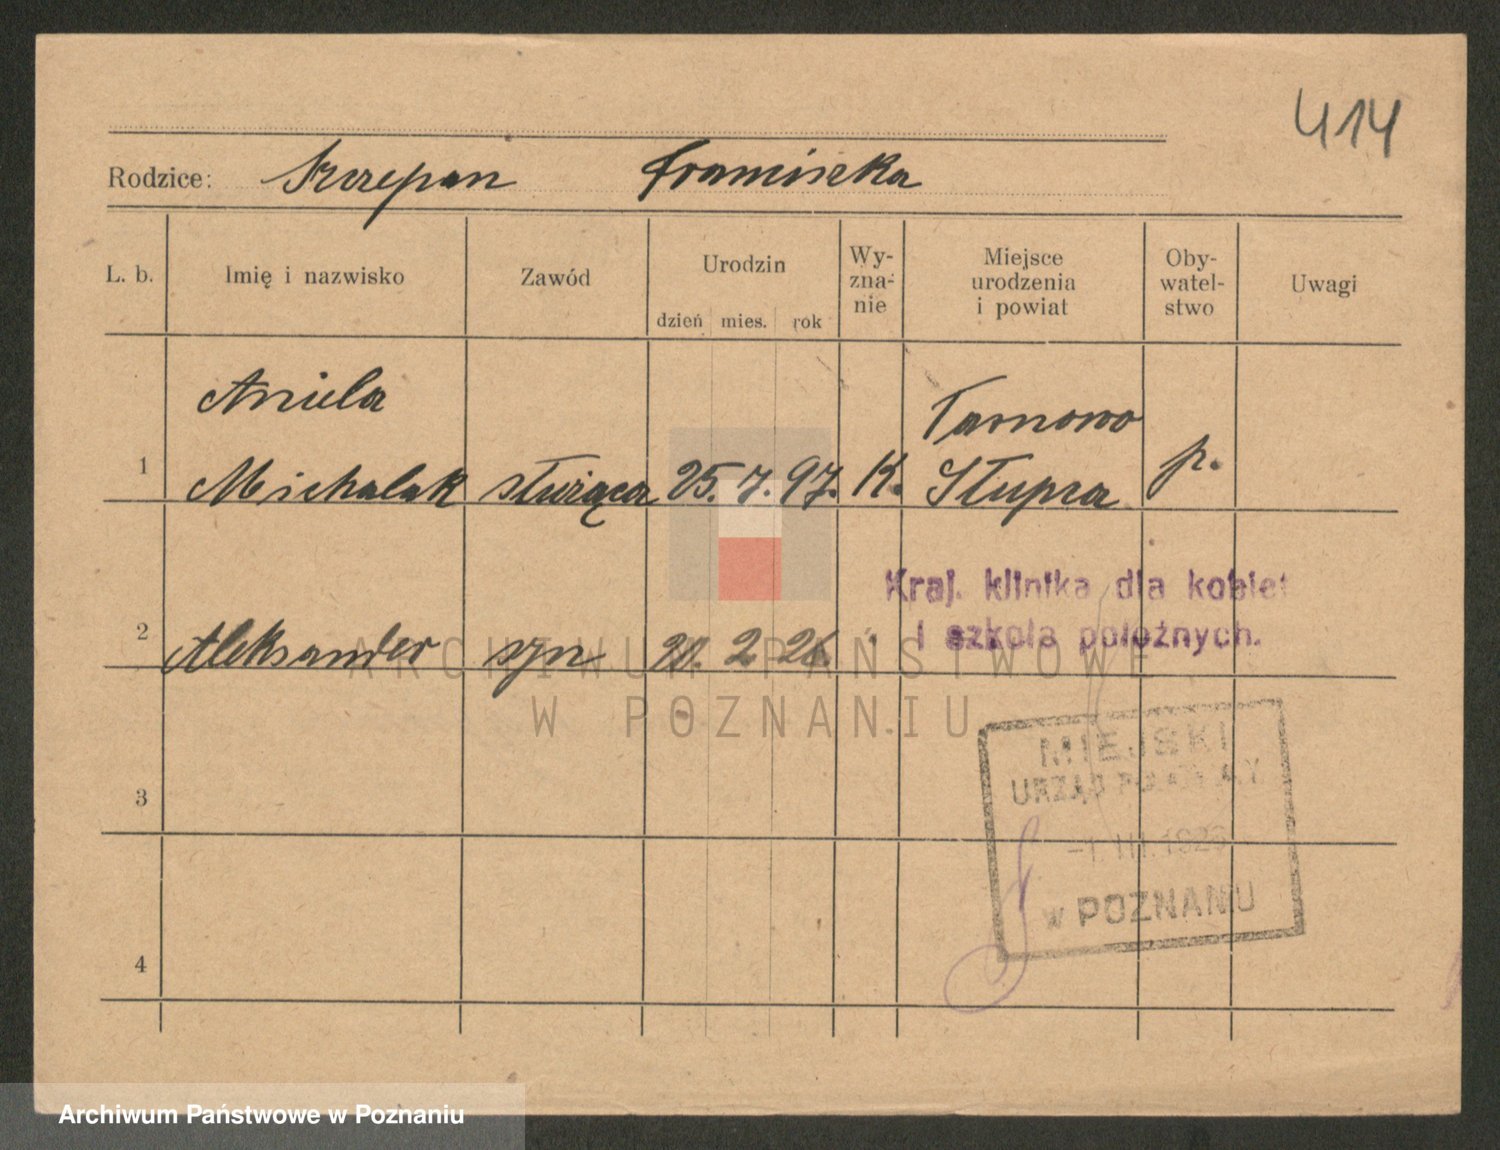 414
Rodzice: Szczepan Franciszka
L. b. Imię i nazwisko Zawód Urodzin dzień mies. rok Wy-zna-nie Miejsce urodzenia i powiat Oby-watel-stwo Uwagi
Aniela Tarnowo
1 Michalak służąca 25. 7. 97. K. Słupca p.
Kraj. klinika dla kobiet
i szkoła położnych.
2 Aleksander syn 2. 26.
ARCHIWUM PAŃSTWOWE
W POZNANIU
MIEJSKI
URZĄD
3
-1. III. 1926
w POZNANIU
4
Archiwum Państwowe w Poznaniu